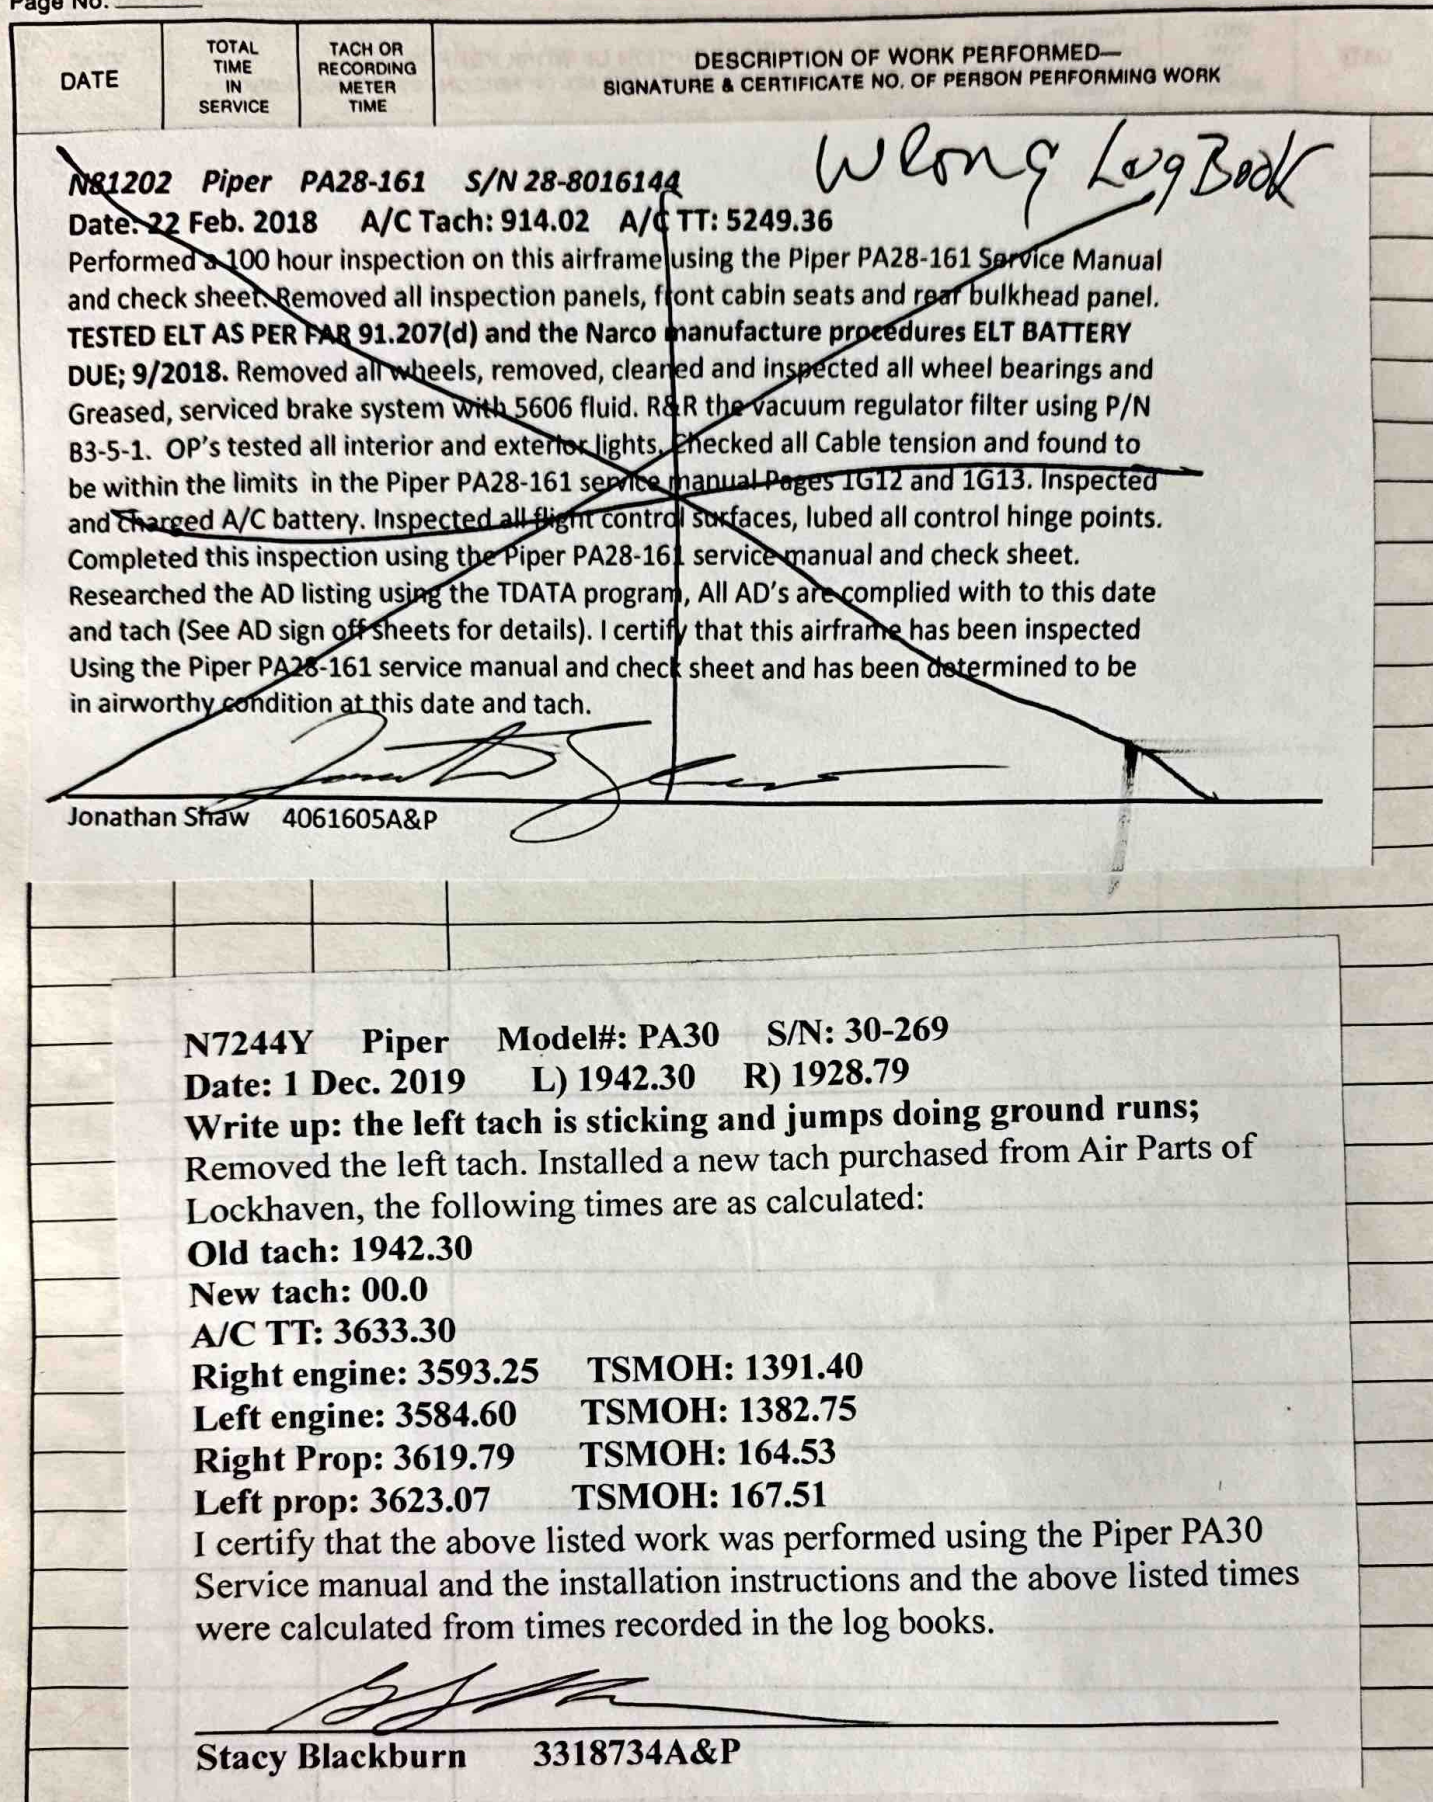 Page No.
DATE
TOTAL TIME IN SERVICE
TACH OR RECORDING METER TIME
DESCRIPTION OF WORK PERFORMED—
SIGNATURE & CERTIFICATE NO. OF PERSON PERFORMING WORK
Wrong Log Book
N81202 Piper PA28-161 S/N 28-8016144
Date: 22 Feb. 2018 A/C Tach: 914.02 A/C TT: 5249.36
Performed a 100 hour inspection on this airframe using the Piper PA28-161 Service Manual
and check sheet. Removed all inspection panels, front cabin seats and rear bulkhead panel.
TESTED ELT AS PER FAR 91.207(d) and the Narco manufacture procedures ELT BATTERY
DUE; 9/2018. Removed all wheels, removed, cleaned and inspected all wheel bearings and
Greased, serviced brake system with 5606 fluid. R&R the vacuum regulator filter using P/N
B3-5-1. OP's tested all interior and exterior lights. Checked all Cable tension and found to
be within the limits in the Piper PA28-161 service manual Pages 1G12 and 1G13. Inspected
and charged A/C battery. Inspected all flight control surfaces, lubed all control hinge points.
Completed this inspection using the Piper PA28-161 service manual and check sheet.
Researched the AD listing using the TDATA program, All AD's are complied with to this date
and tach (See AD sign off sheets for details). I certify that this airframe has been inspected
Using the Piper PA28-161 service manual and check sheet and has been determined to be
in airworthy condition at this date and tach.
Jonathan Shaw 4061605A&P
N7244Y Piper Model#: PA30 S/N: 30-269
Date: 1 Dec. 2019 L) 1942.30 R) 1928.79
Write up: the left tach is sticking and jumps doing ground runs;
Removed the left tach. Installed a new tach purchased from Air Parts of
Lockhaven, the following times are as calculated:
Old tach: 1942.30
New tach: 00.0
A/C TT: 3633.30
Right engine: 3593.25 TSMOH: 1391.40
Left engine: 3584.60 TSMOH: 1382.75
Right Prop: 3619.79 TSMOH: 164.53
Left prop: 3623.07 TSMOH: 167.51
I certify that the above listed work was performed using the Piper PA30
Service manual and the installation instructions and the above listed times
were calculated from times recorded in the log books.
Stacy Blackburn 3318734A&P